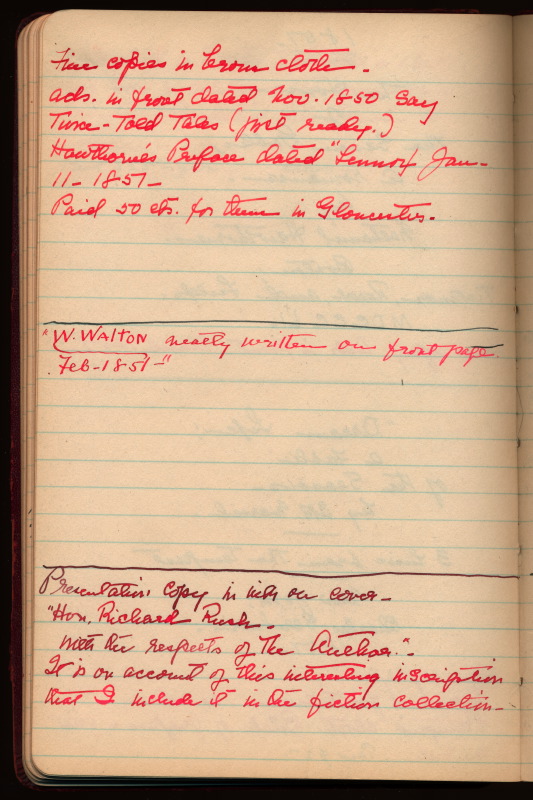 Fine copies in brown cloth -
ads. in front dated Nov. 1850 Say
Twice-Told Tales (just ready.)
Hawthorne's Preface dated "Lennox Jan-
11 - 1851 -
Paid 50 cts. for them in Gloucester.
"W. WALTON neatly written on front page.
Feb - 1851 - "
Presentation copy in ink on cover -
"Hon. Richard Rush -
with the respects of The Author." -
It is on account of this interesting inscription
that I include it in the fiction collection -